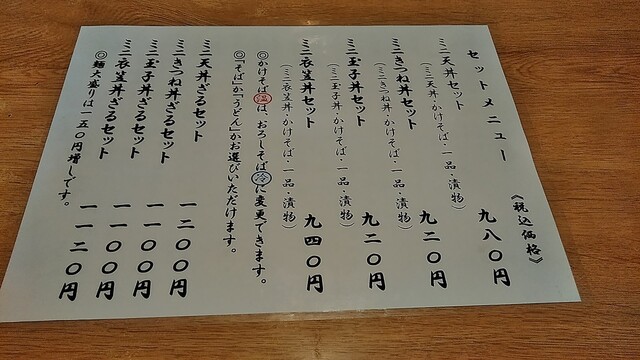 セットメニュー
《税込価格》
ミニ天丼セット 九八〇円
(ミニ天丼・かけそば・一品・漬物)
ミニきつね丼セット 九二〇円
(ミニきつね丼・かけそば・一品・漬物)
ミニ玉子丼セット 九二〇円
(ミニ玉子丼・かけそば・一品・漬物)
ミニ衣笠丼セット 九四〇円
(ミニ衣笠丼・かけそば・一品・漬物)
◎かけそば温は、おろしそば冷に変更できます。
◎「そば」か「うどん」かお選びいただけます。
ミニ天丼ざるセット 一二〇〇円
ミニきつね丼ざるセット 一一〇〇円
ミニ玉子丼ざるセット 一一〇〇円
ミニ衣笠丼ざるセット 一一二〇円
◎麺大盛りは一五〇円増しです。